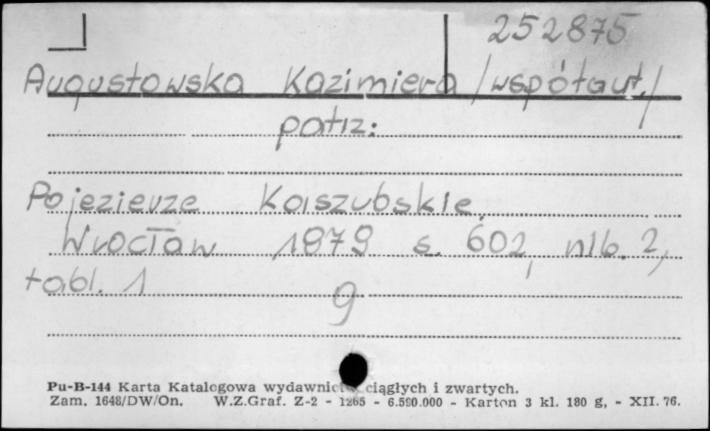 252875
Augustowska Kazimiera /współaut./
patrz:
Pojezierze Kaszubskie.
Wrocław 1979 s. 602, nlb. 2,
tabl. 1
9
Pu-B-144 Karta Katalogowa wydawnictw ciągłych i zwartych.
Zam. 1648/DW/On. W.Z.Graf. Z-2 - 1265 - 6.590.000 - Karton 3 kl. 180 g, - XII. 76.